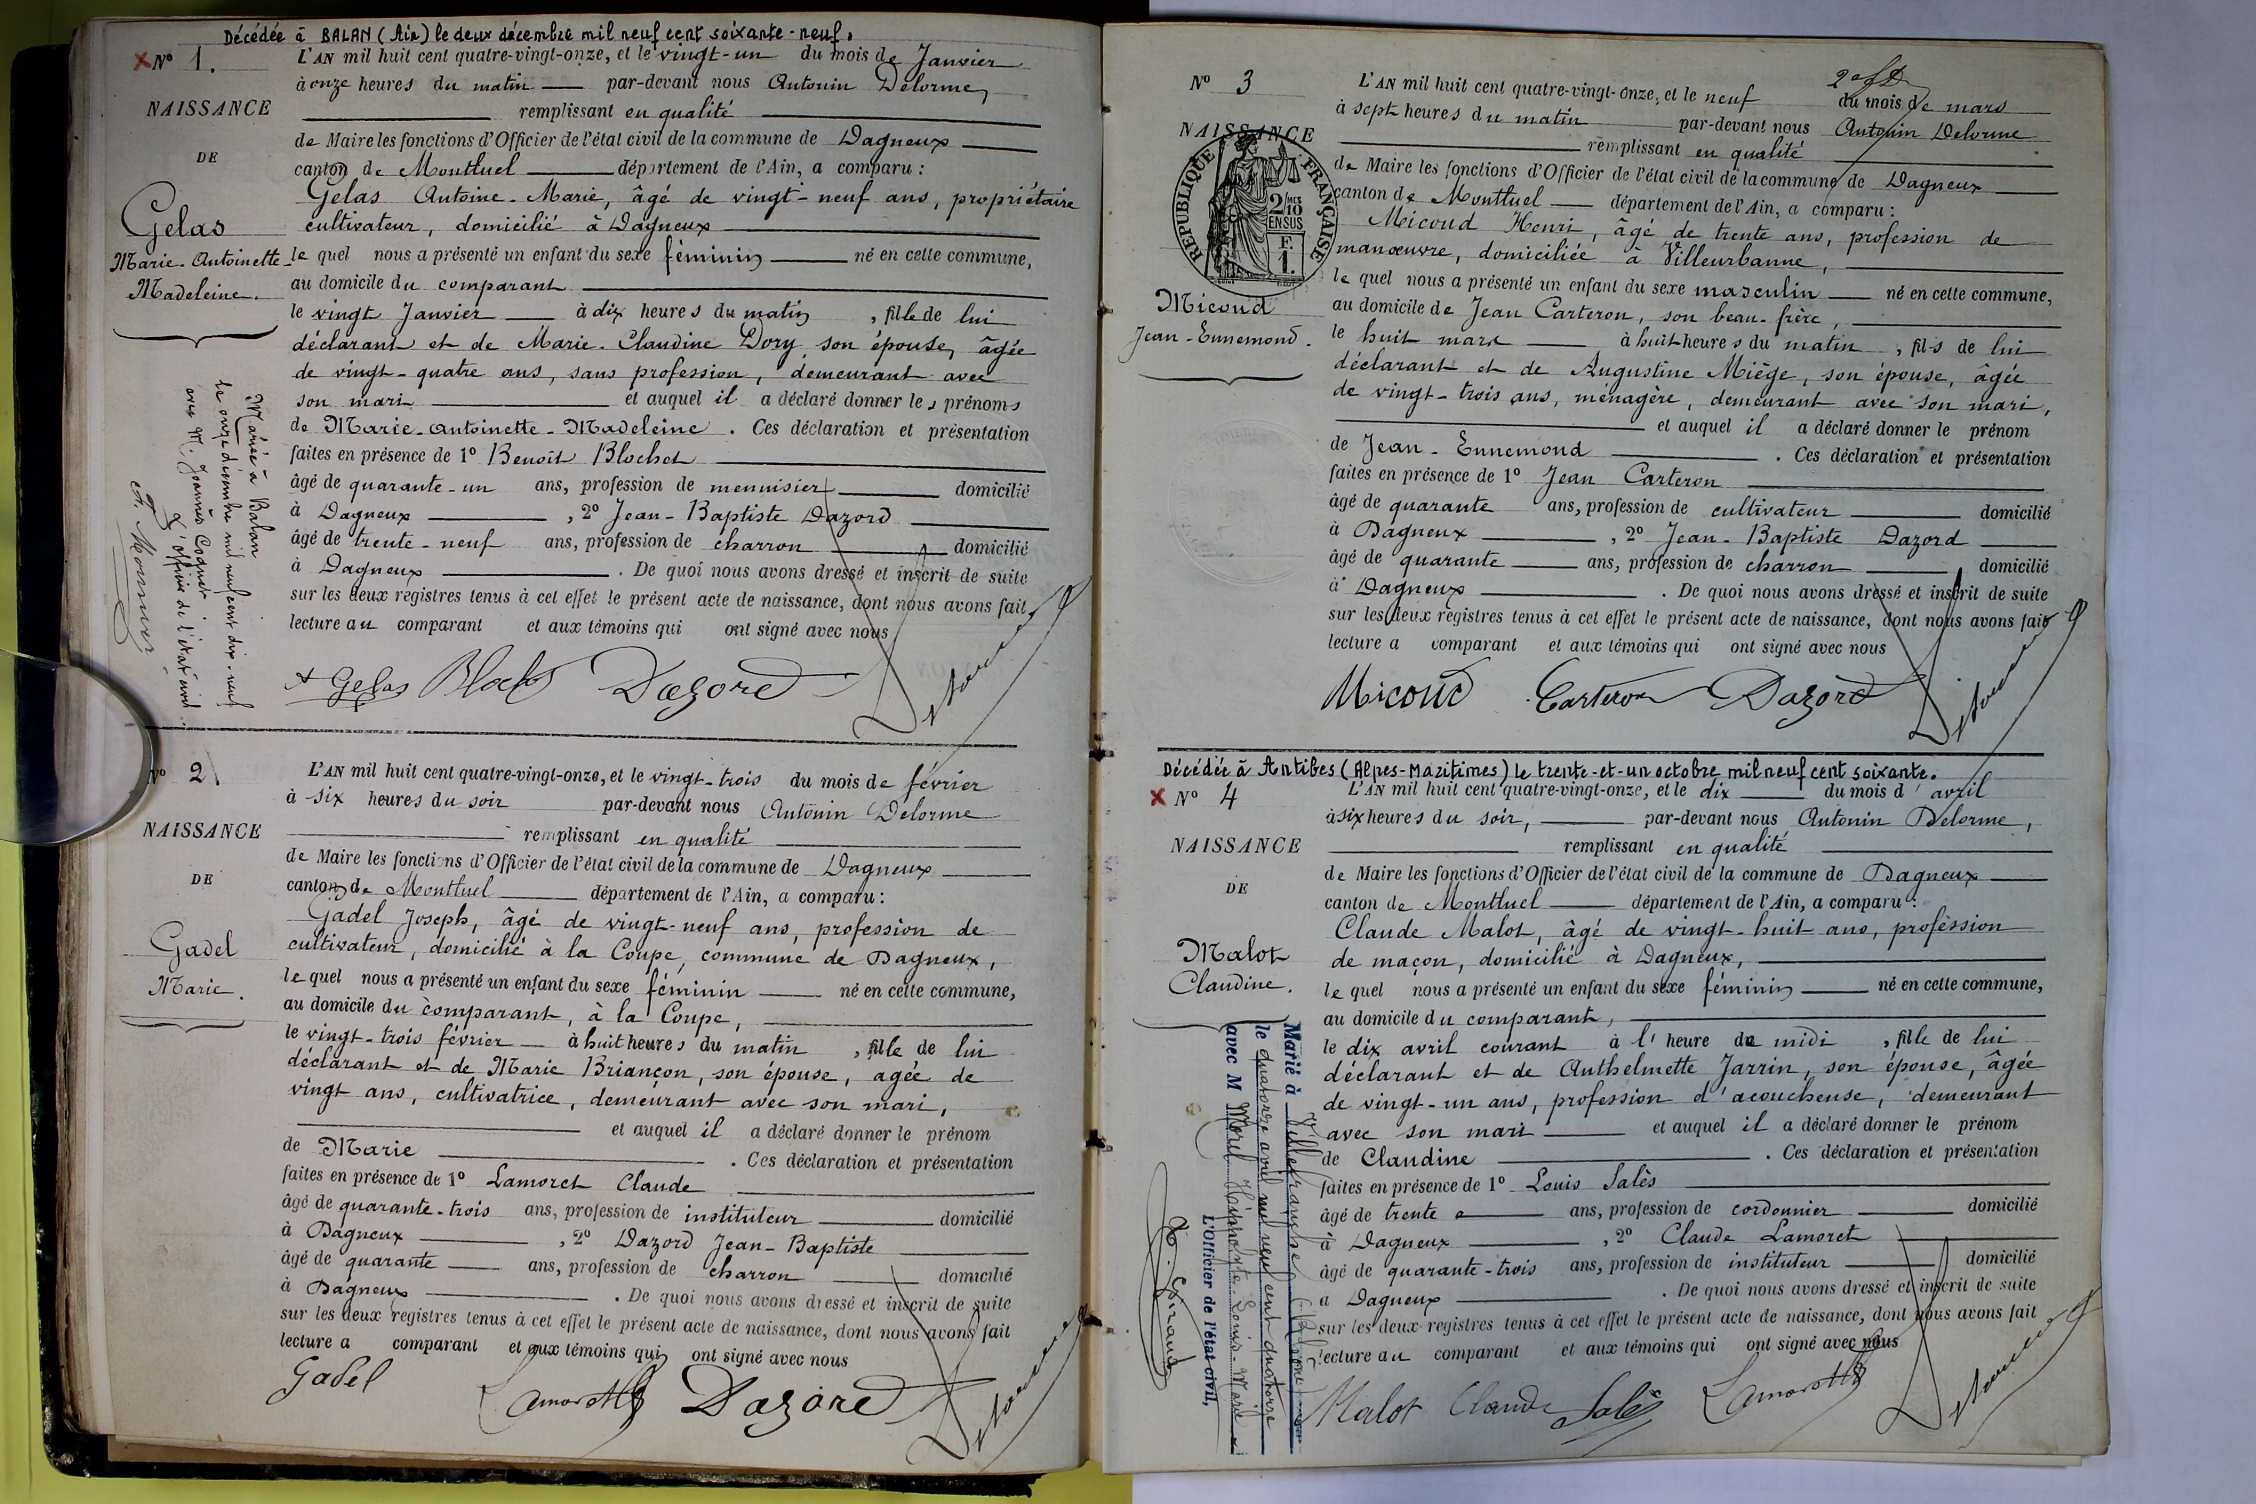 Décédée à BALAN (Ain) le deux décembre mil neuf cent soixante-neuf.
Nº 1.
NAISSANCE
DE
Gelas
Marie-Antoinette-
Madeleine.
L'AN mil huit cent quatre-vingt-onze, et le vingt-un du mois de Janvier
à onze heures du matin par-devant nous Antonin Delorme,
remplissant en qualité
de Maire les fonctions d'Officier de l'état civil de la commune de Dagneux
canton de Montluel département de l'Ain, a comparu :
Gelas Antoine-Marie, âgé de vingt-neuf ans, propriétaire
cultivateur, domicilié à Dagneux
le quel nous a présenté un enfant du sexe féminin né en cette commune,
au domicile du comparant
le vingt Janvier à dix heures du matin, fille de lui
déclarant et de Marie-Claudine Dory son épouse, âgée
de vingt-quatre ans, sans profession, demeurant avec
son mari et auquel il a déclaré donner les prénoms
de Marie-Antoinette-Madeleine. Ces déclaration et présentation
faites en présence de 1º Benoît Blochet
âgé de quarante-un ans, profession de menuisier domicilié
à Dagneux, 2º Jean-Baptiste Dazord
âgé de trente-neuf ans, profession de charron domicilié
à Dagneux. De quoi nous avons dressé et inscrit de suite
sur les deux registres tenus à cet effet le présent acte de naissance, dont nous avons fait
lecture au comparant et aux témoins qui ont signé avec nous
Gelas Dazord Delorme
Mariée à Balan
le onze décembre mil neuf cent dix-neuf
avec M. Joannès Coquet
L'officier de l'état civil :
Nº 2
NAISSANCE
DE
Gadel
Marie.
L'AN mil huit cent quatre-vingt-onze, et le vingt-trois du mois de février
à six heures du soir par-devant nous Antonin Delorme
remplissant en qualité
de Maire les fonctions d'Officier de l'état civil de la commune de Dagneux
canton de Montluel département de l'Ain, a comparu :
Gadel Joseph, âgé de vingt-neuf ans, profession de
cultivateur, domicilié à la Coupe, commune de Dagneux,
le quel nous a présenté un enfant du sexe féminin né en cette commune,
au domicile du comparant, à la Coupe,
le vingt-trois février à huit heures du matin, fille de lui
déclarant et de Marie Briançon, son épouse, agée de
vingt ans, cultivatrice, demeurant avec son mari,
et auquel il a déclaré donner le prénom
de Marie. Ces déclaration et présentation
faites en présence de 1º Lamoret Claude
âgé de quarante-trois ans, profession de instituteur domicilié
à Dagneux, 2º Dazord Jean-Baptiste
âgé de quarante ans, profession de charron domicilié
à Dagneux. De quoi nous avons dressé et inscrit de suite
sur les deux registres tenus à cet effet le présent acte de naissance, dont nous avons fait
lecture a comparant et aux témoins qui ont signé avec nous
Gadel Dazord Delorme
Nº 3
NAISSANCE
RÉPUBLIQUE FRANÇAISE
2 MES
10
EN SUS
F.
1.
Micoud
Jean-Ennemond.
L'AN mil huit cent quatre-vingt-onze, et le neuf du mois de mars
à sept heures du matin par-devant nous Antonin Delorme
remplissant en qualité
de Maire les fonctions d'Officier de l'état civil de la commune de Dagneux
canton de Montluel département de l'Ain, a comparu :
Micoud Henri, âgé de trente ans, profession de
manœuvre, domiciliée à Villeurbanne,
le quel nous a présenté un enfant du sexe masculin né en cette commune,
au domicile de Jean Carteron, son beau-frère,
le huit mars à huit heures du matin, fils de lui
déclarant et de Augustine Miège, son épouse, âgée
de vingt-trois ans, ménagère, demeurant avec son mari,
et auquel il a déclaré donner le prénom
de Jean-Ennemond. Ces déclaration et présentation
faites en présence de 1º Jean Carteron
âgé de quarante ans, profession de cultivateur domicilié
à Dagneux, 2º Jean-Baptiste Dazord
âgé de quarante ans, profession de charron domicilié
à Dagneux. De quoi nous avons dressé et inscrit de suite
sur les deux registres tenus à cet effet le présent acte de naissance, dont nous avons fait
lecture a comparant et aux témoins qui ont signé avec nous
Micoud Carteron Dazord Delorme
Décédée à Antibes (Alpes-Maritimes) le trente-et-un octobre mil neuf cent soixante.
Nº 4
NAISSANCE
DE
Malot
Claudine.
L'AN mil huit cent quatre-vingt-onze, et le dix du mois d'avril
à six heures du soir, par-devant nous Antonin Delorme,
remplissant en qualité
de Maire les fonctions d'Officier de l'état civil de la commune de Dagneux
canton de Montluel département de l'Ain, a comparu :
Claude Malot, âgé de vingt-huit ans, profession
de maçon, domicilié à Dagneux,
le quel nous a présenté un enfant du sexe féminin né en cette commune,
au domicile du comparant,
le dix avril courant à l'heure de midi, fille de lui
déclarant et de Anthelmette Jarrin, son épouse, âgée
de vingt-un ans, profession d'acoucheuse, demeurant
avec son mari et auquel il a déclaré donner le prénom
de Claudine. Ces déclaration et présentation
faites en présence de 1º Louis Salès
âgé de trente ans, profession de cordonnier domicilié
à Dagneux, 2º Claude Lamoret
âgé de quarante-trois ans, profession de instituteur domicilié
a Dagneux. De quoi nous avons dressé et inscrit de suite
sur les deux registres tenus à cet effet le présent acte de naissance, dont nous avons fait
lecture au comparant et aux témoins qui ont signé avec nous
Malot Claude Salès Delorme
Marié à Villefranche (Rhône)
le quatorze avril mil neuf cent quatorze
avec M Morel Hippolyte-Louis-Marie
L'Officier de l'état civil,